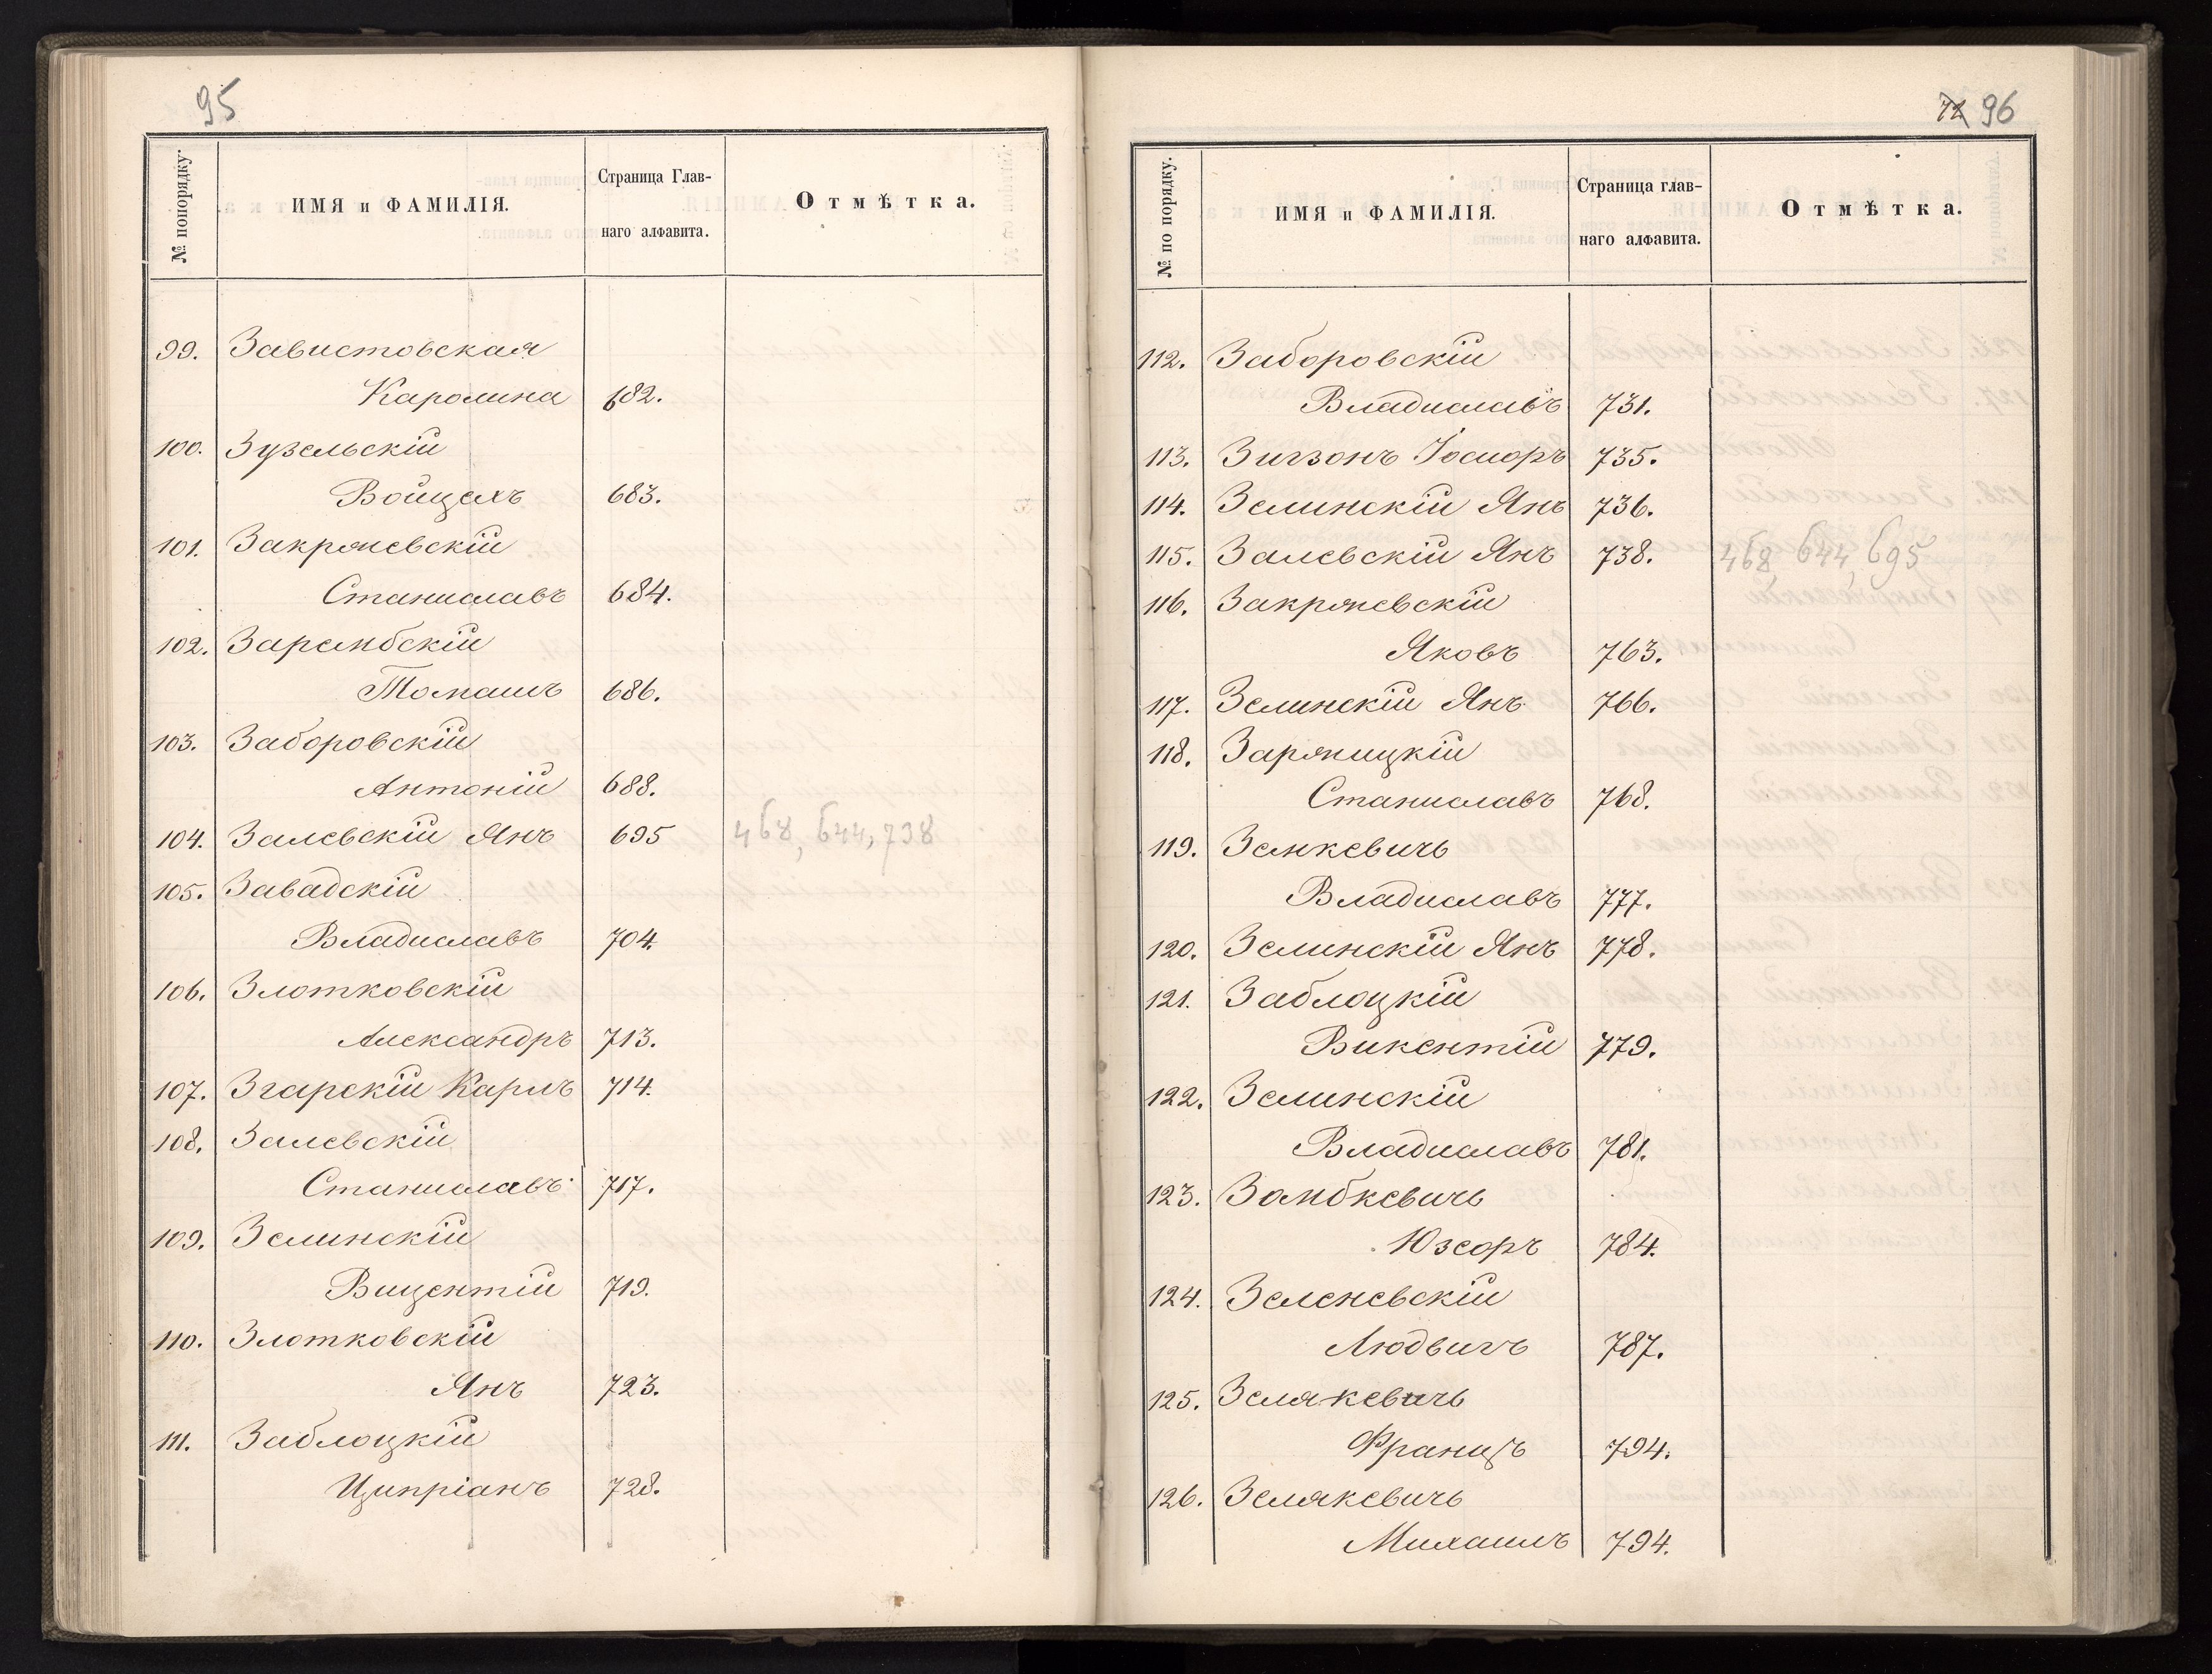 95
№ попорядку.
ИМЯ и ФАМИЛІЯ.
Страница Глав-
наго алфавита.
Отмѣтка.
99. Завистовская
Каролина 682.
100. Зузельскій
Войцехъ 683.
101. Закржевскій
Станиславъ 684.
102. Зарембскій
Томашъ 686.
103. Заборовскій
Антоній 688.
104. Залевскій Янъ 695 468, 644, 738
105. Завадскій
Владиславъ 704.
106. Злотковскій
Александръ 713.
107. Згарскій Карлъ 714.
108. Залевскій
Станиславъ 717.
109. Зелинскій
Вицентій 719.
110. Злотковскій
Янъ 723.
111. Заблоцкій
Ципріанъ 728.
72 96
№ по порядку.
ИМЯ и ФАМИЛІЯ.
Страница глав-
наго алфавита.
Отмѣтка.
112. Заборовскій
Владиславъ 731.
113. Зигзонъ Іосифъ 735.
114. Зелинскій Янъ 736.
115. Залевскій Янъ 738. 468, 644, 695
116. Закржевскій
Яковъ 763.
117. Зелинскій Янъ 766.
118. Заржицкій
Станиславъ 768.
119. Зенкевичъ
Владиславъ 777.
120. Зелинскій Янъ 778.
121. Заблоцкій
Викентій 779.
122. Зелинскій
Владиславъ 781.
123. Зомбкевичъ
Юзефъ 784.
124. Зеленевскій
Людвигъ 787.
125. Зелякевичъ
Францъ 794.
126. Зелякевичъ
Михаилъ 794.